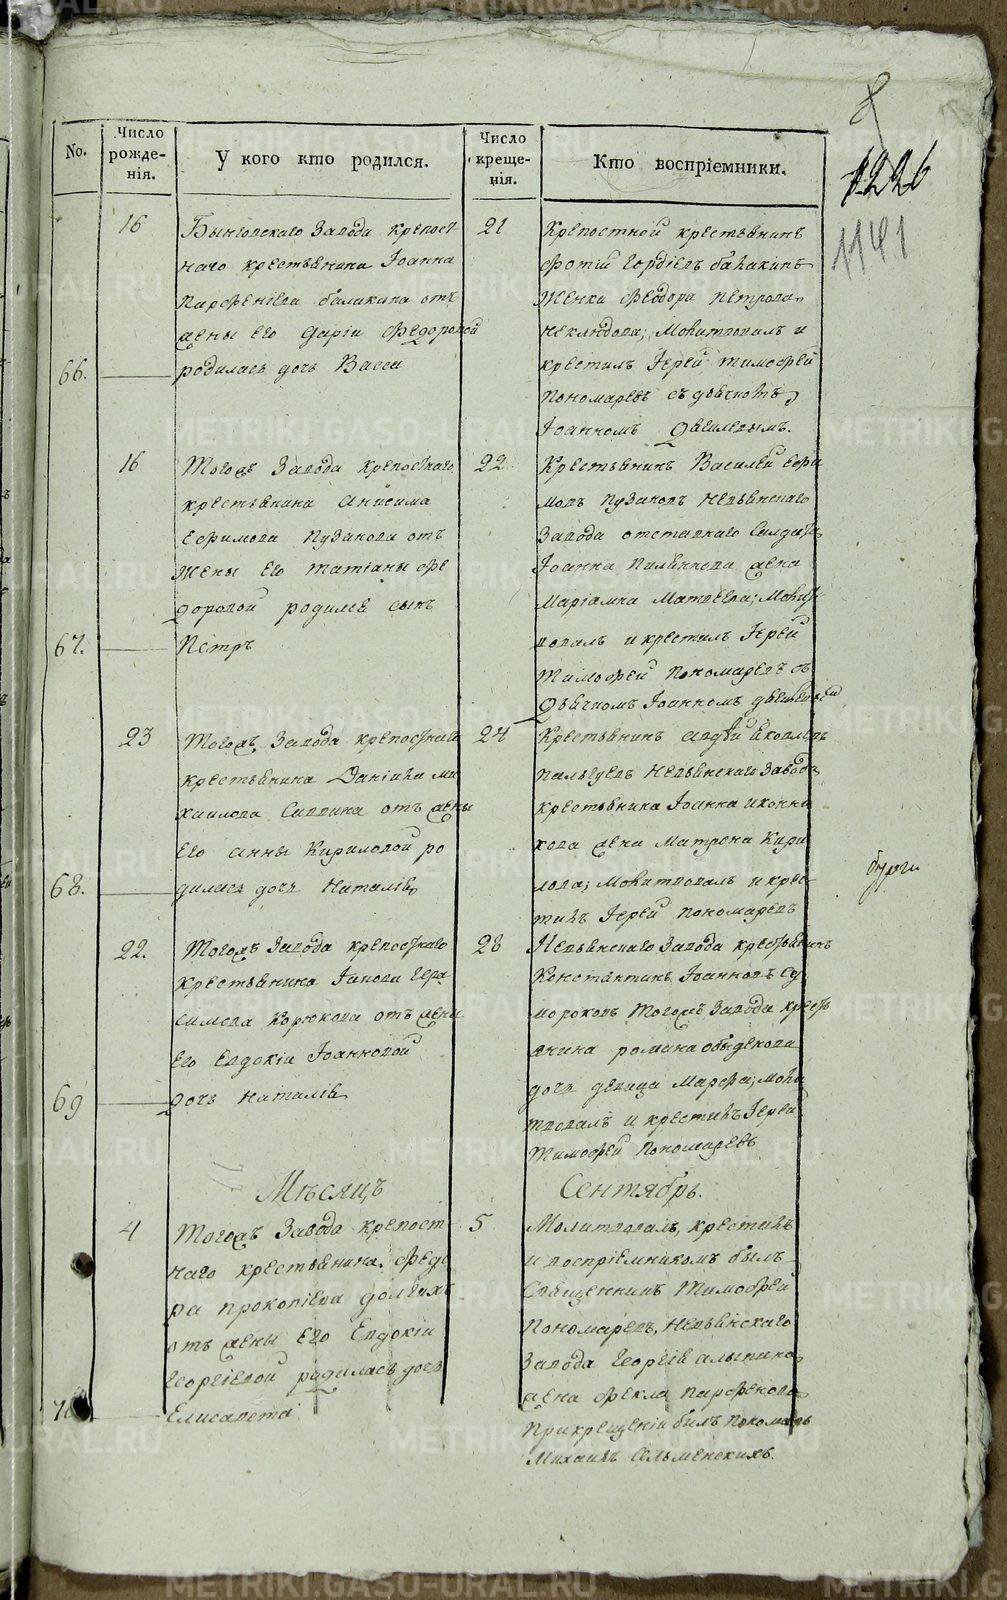 1226
1141
No.
Число рожде-нія.
У кого кто родился.
Число креще-нія.
Кто воспріемники.
66.
16
Быньговскаго Завода крепост
наго крестьянина Іоанна
Парфеніева балакина отъ
жены его Даріи Федоровой
родилась дочь Васса
21
Крепостной крестьянинъ
Фотій Гордіевъ балакинъ
Женка Феодора Петрова
Неклюдова; Молитвовалъ и
крестилъ Іерей Тимофей
Пономаревъ съ дьячкомъ
Іоанномъ
67.
16
Тогожъ Завода крепостнаго
крестьянина Анисима
Ефимова Пузанова отъ
Жены его Татіаны Фе
доровой родился сынъ
Петръ
22
Крестьянинъ Василей Ефи
мовъ Пузановъ Невьянскаго
Завода отставнаго Салдата
Іоанна жена
Маріамна Матвеева; Молит
вовалъ и крестилъ Іерей
Тимофей Пономаревъ съ
Дьячкомъ Іоанномъ
68.
23
Тогожъ Завода крепостнаго
крестьянина Даніила Ми
хаилова Саввина отъ жены
его Анны Кириловой ро
дилась дочь Наталія
24
Крестьянинъ Авдей Яковлевъ
Пальцевъ Невьянскаго Завода
крестьянина Іоанна Иконни
кова жена Матрона Кири
лова; Молитвовалъ и крес
тилъ Іерей Пономаревъ
69
22.
Тогожъ Завода крепостнаго
крестьянина Іакова Гера
симова Корюкова отъ жены
Его Евдокіи Іоанновой
дочь Наталія
28
Невьянскаго Завода крестьянинъ
Константинъ Іоанновъ Су
мороковъ тогожъ Завода кресть
янина романа обыденова
дочь девица Марфа; моли
твовалъ и крестилъ Іерей
Тимофей Пономаревъ
Мѣсяцъ
Сентябрь.
70
4
Тогожъ Завода крепост
наго крестьянина Федо
ра Прокопіева Долгихъ
отъ жены Его Евдокіи
Георгіевой родилась дочь
Елисавета
5
Молитвовалъ, крестилъ
и воспріемникомъ былъ
Священникъ Тимофей
Пономаревъ, Невьянскаго
Завода Георгія
жена Фекла Парфенова
При крещеніи былъ Пономарь
Михаилъ Сельменскихъ.